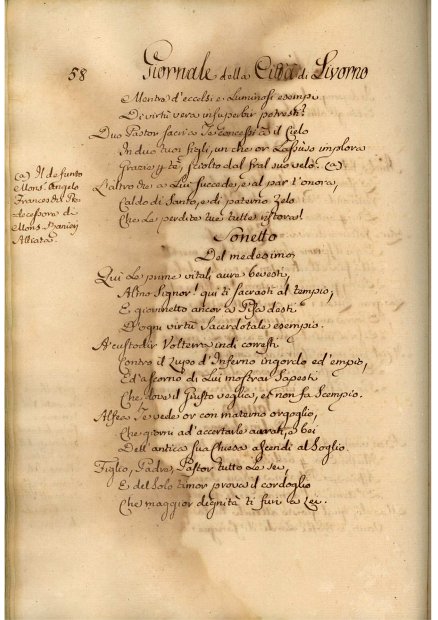 58
Giornale della Città di Livorno
Mentre d'eccelsi e Luminosi esempi
Di virtù vera insuperbir potresti?
Due Pastor sacri a Te concessi à il Cielo
In due tuoi figli, un che or Lassuso implora
Grazie p te, sciolto dal fral suo velo. (a)
L'altro che a Lui succede, e al par t'onora,
Caldo di Santo, e di paterno Zelo
Che Le perdite tue tutte ristora!
(a) Il defunto
Mons. Angelo
Franceschi
decessore di
Mons.
Alliata.
Sonetto
Del medesimo
Qui Le prime vitali aure bevesti,
Almo Signor! qui ti sacrasti al tempio,
E giovinetto ancor a Pisa desti
D'ogni virtù Sacerdotale esempio.
A custodir Volterra indi corresti
Contro il Lupo d'Inferno ingordo ed empio,
Ed a scorno di Lui mostrar Sapesti
Che, dove il Giusto veglia, ei non fa Scempio.
Alfea Te vede or con materno orgoglio,
Che giorni ad accertarle aurati, e bei
Dell'antica sua Chiesa ascendi al Soglio
Figlio, Padre, Pastor tutto Le sei,
E del Solo timor prova il cordoglio
Che maggior dignità ti furi a Lei.